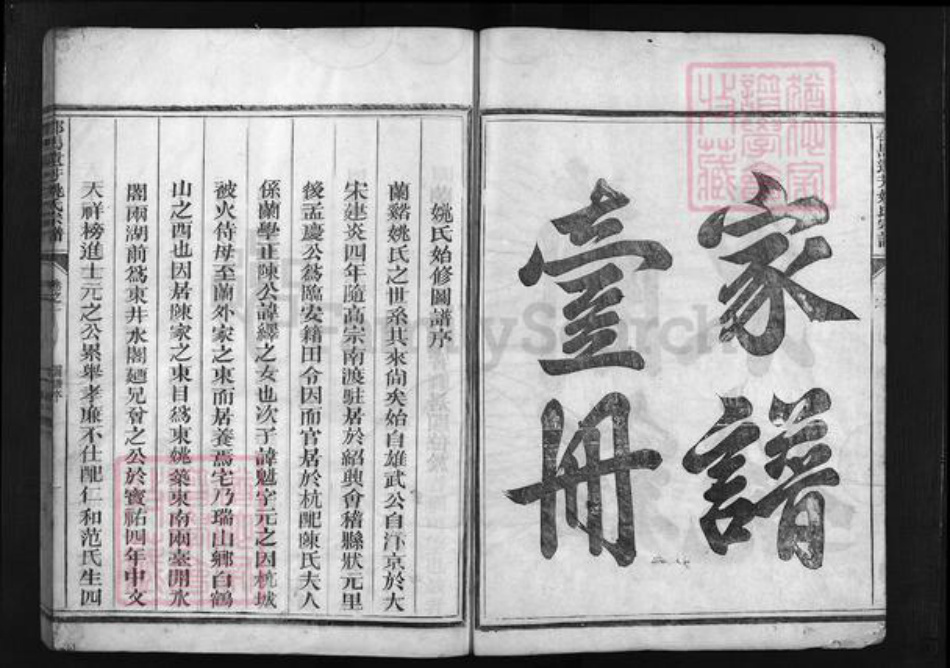 家譜
壹冊
姚氏始修圖譜序
蘭谿姚氏之世系其來尙矣始自雄武公自汴京於大
宋建炎四年隨高宗南渡駐居於紹興會稽縣狀元里
後孟慶公爲臨安籍田令因而官居於杭配陳氏夫人
係蘭學正陳公諱繹之女也次子諱魁字元之因杭城
被火侍母至蘭外家之東而居養焉宅乃瑞山鄉白鶴
山之西也因居陳家之東目爲東姚築東南兩臺開水
閣兩湖前爲東井水閣廼兄曾之公於寶祐四年中文
天祥榜進士元之公累舉孝廉不仕配仁和范氏生四
姚氏宗譜
FamilySearch